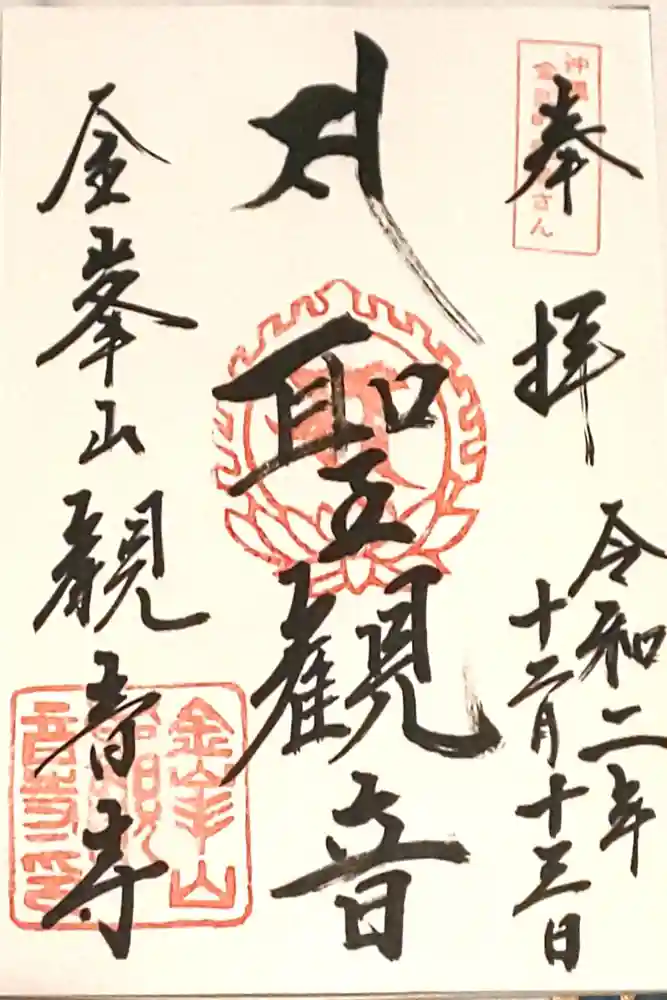 沖縄
奉拝
令和二年
十二月十三日
聖観音
金峯山観音寺
金峯山